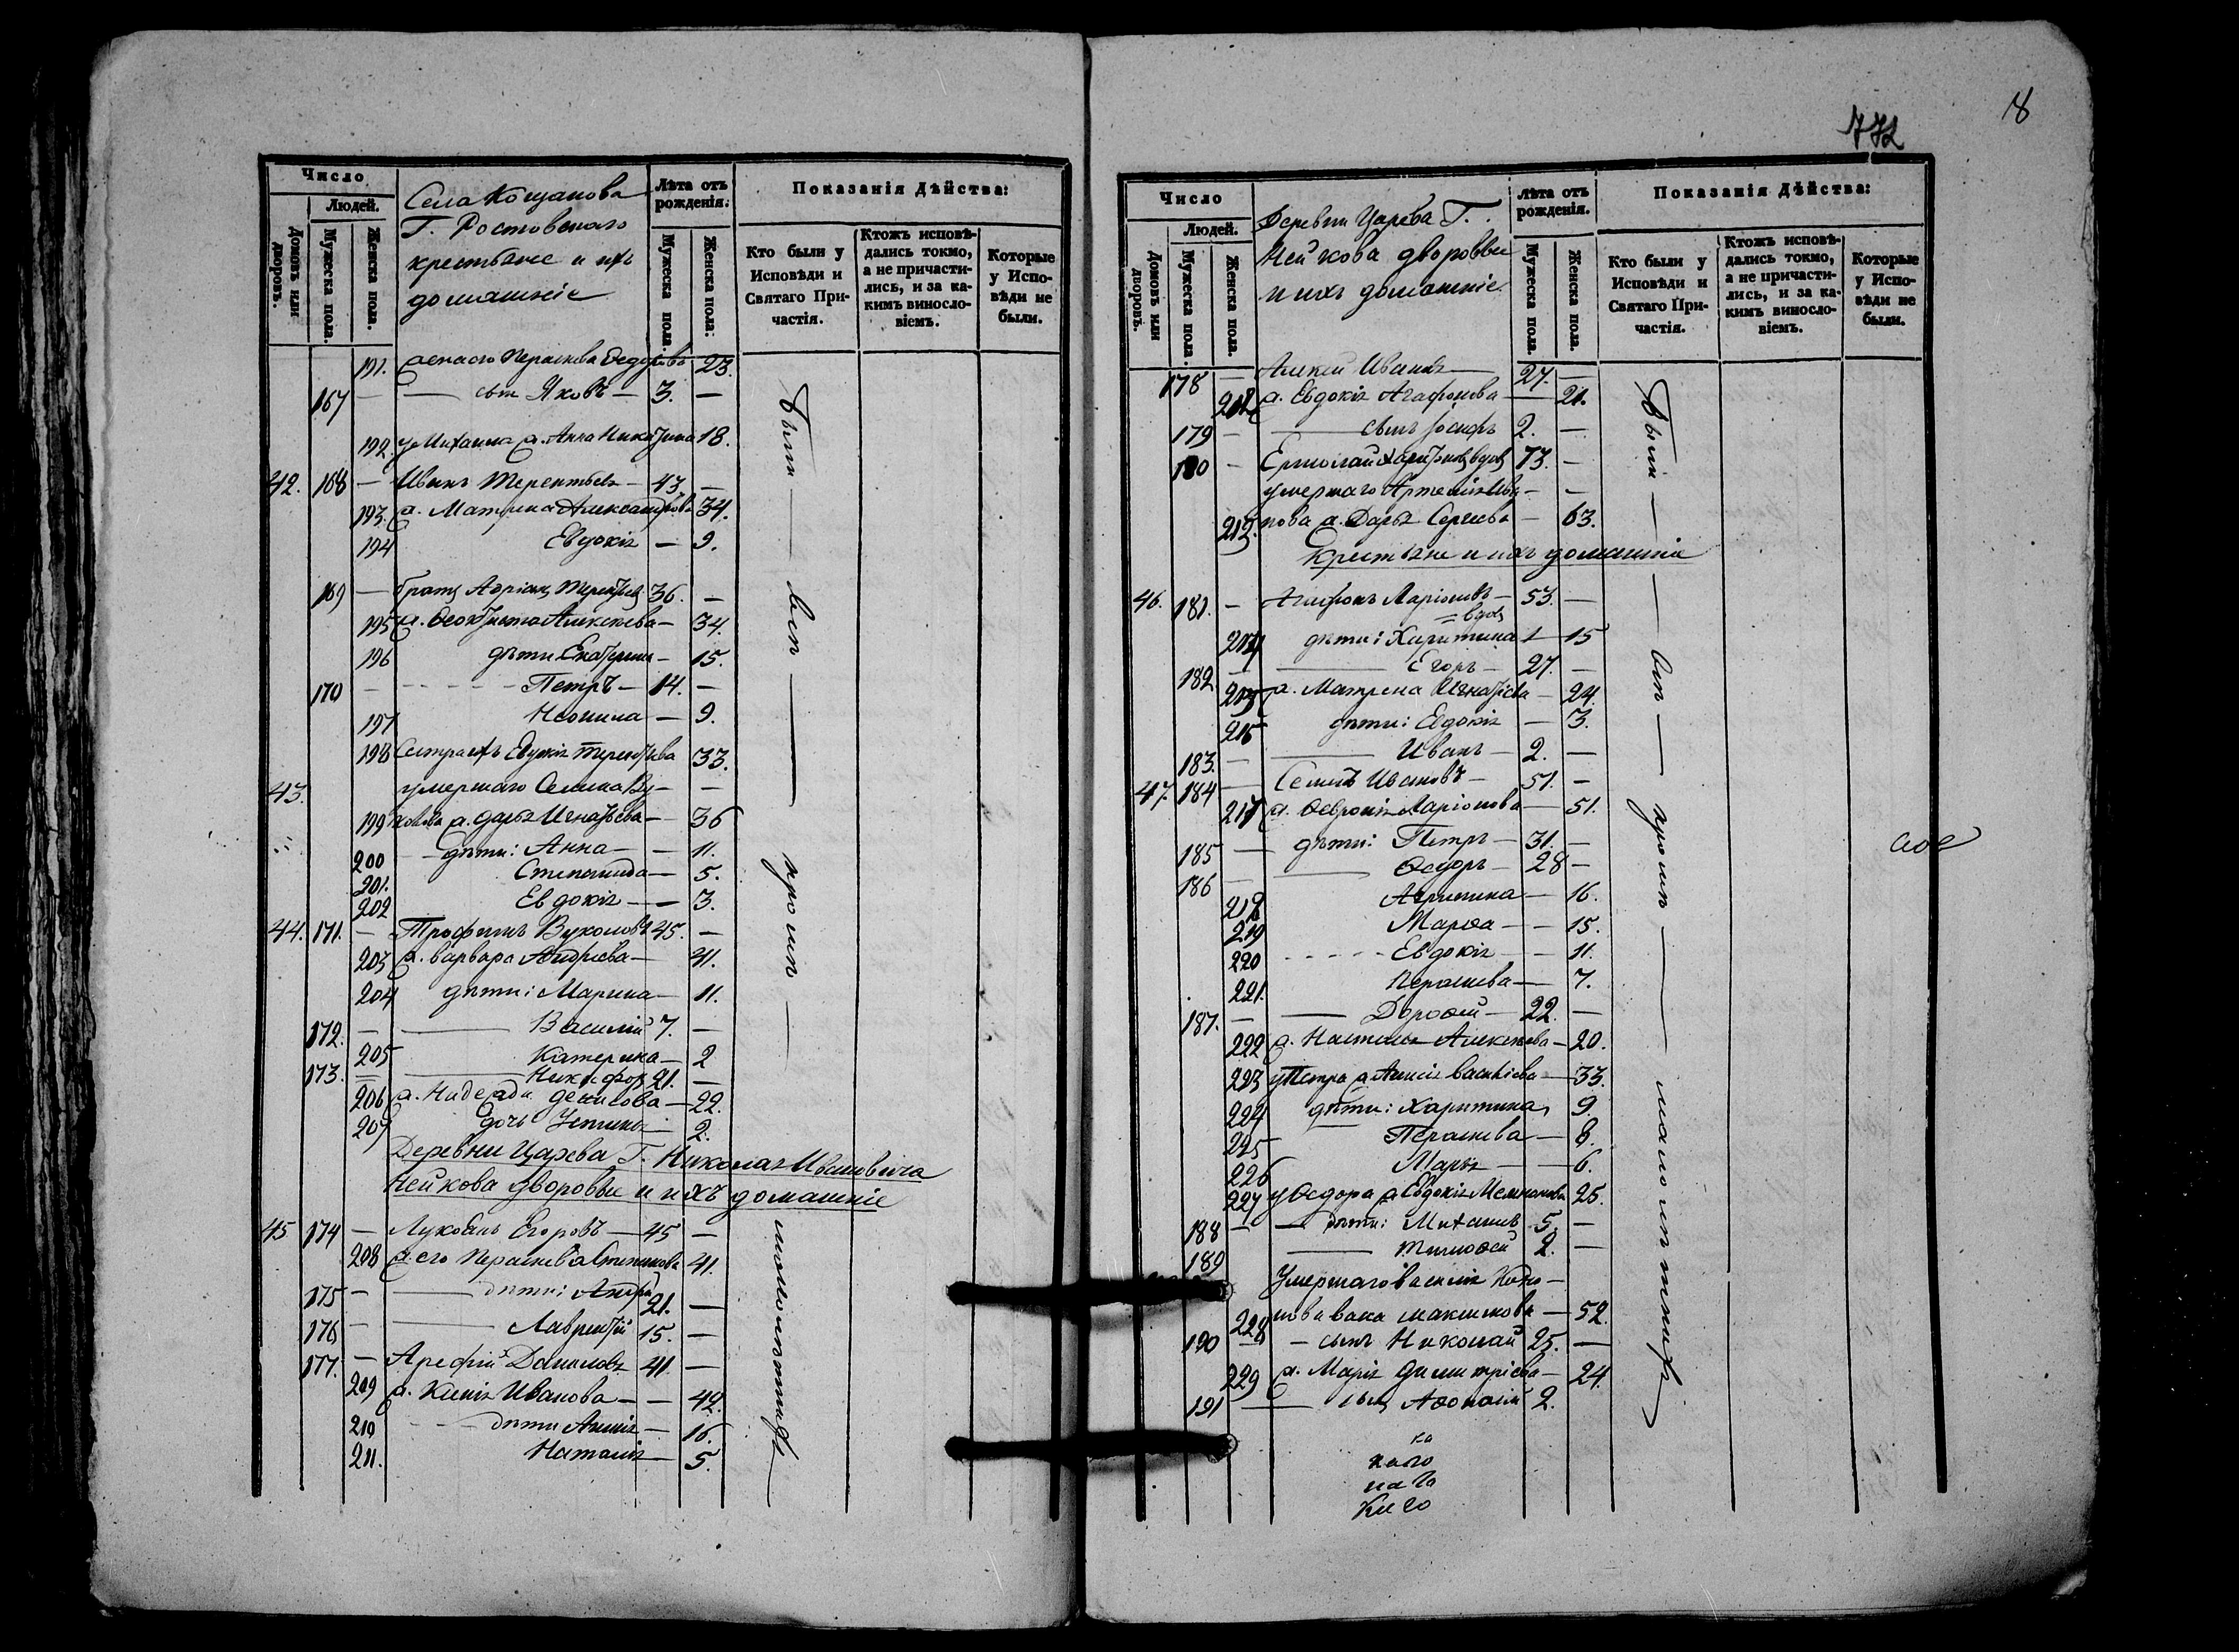 Число
Людей.
Домовъ или дворовъ.
Мужеска пола.
Женска пола.
Села Кощанова
Г. Ростовскаго
крестьяне и ихъ
домашніе
Лѣта отъ рожденія:
Мужеска пола.
Женска пола:
Показанія Дѣйства:
Кто были у Исповѣди и Святаго Причастія.
Ктожъ исповѣдались токмо, а не причастились, и за какимъ винословіемъ.
Которые у Исповѣди не были.
191. Параскева Федорова 23.
167 — сынъ Яковъ — 3. —
192 у Михаила ж. Анна Никитина 18.
42. 168 — Иванъ Терентьевъ — 43 —
193. ж. Матрена Александрова 34.
194 Евдокія — 9.
169 — братъ Адріанъ Терентьевъ 36. —
195 ж. Феоктиста Алексѣева — 34.
196 дѣти Екатерина — 15.
170 — Петръ — 14. —
197 Неонила — 9.
198 Сестра ихъ Евдокія Терентьева 33.
43. умершаго Семена Ву— —
199 колова ж. Дарья Игнатьева — 36
200 — дѣти: Анна — 11.
201. Степанида — 5.
202 Евдокія — 3.
44. 171. — Трофимъ Вуколовъ 45. —
203 ж. Варвара Андреева — 41.
204 дѣти: Марина — 11.
172. — Василій 7. —
205 Катерина — 2
173. — Никифоръ 21. —
206 ж. Надежда Денисова — 22.
207 дочь Устинья 2.
Деревни Царева Г. Николая Ивановича
Нейкова дворовые и ихъ домашніе
45 174 — Лукьянъ Егоровъ — 45 —
208 ж. его Параскева Степанова 41.
175 — дѣти: Андрей 21. —
176 — Лаврентій 15. —
177. — Арефій Даниловъ 41 —
209 ж. Ксенія Иванова — 42.
210 дѣти Анисія — 16.
211. Наталія — 5.
Были — вси — кромѣ — малолѣтнихъ
772
18
Число
Людей.
Домовъ или дворовъ.
Мужеска пола.
Женска пола.
Деревни Царева Г.
Нейкова дворовые
и ихъ домашніе.
Лѣта отъ рожденія.
Мужеска пола.
Женска пола.
Показанія Дѣйства:
Кто были у Исповѣди и Святаго Причастія.
Ктожъ исповѣдались токмо, а не причастились, и за какимъ винословіемъ.
Которые у Исповѣди не были.
178 — Алексѣй Ивановъ — 27. —
212 ж. Евдокія Агафонова — 21.
179 — сынъ Іосифъ 2. —
180 — Ермолай Харитоновъ вдовъ 73. —
умершаго Артемія Ива— —
213. нова ж. Дарья Сергеева — 63.
Крестьяне и ихъ домашніе
46. 181. — Агафонъ Ларіоновъ — 53. —
= вдовъ
214 дѣти: Харитина — 15
182. — Егоръ — 27. —
215 ж. Матрена Игнатіева — 24.
216 дѣти: Евдокія — 3.
183. — Иванъ — 2. —
47. 184 — Семенъ Ивановъ — 51. —
217 ж. Февронія Ларіонова — 51.
185 — дѣти: Петръ — 31. —
186 — Федоръ — 28 —
218 Агрипина — 16.
219 Марфа — — 15.
220 Евдокія — 11.
221. Параскева — 7.
187. — Дорофей — 22. —
222 ж. Наталья Алексѣева — 20.
223 у Петра ж. Анисія Васильева — 33.
224 дѣти: Харитина 9.
225 Параскева — 8.
226 Марья — — 6.
227 у Федора ж. Евдокія 25.
188 — дѣти: Михаилъ 5. —
189 — Тимофей 2. —
Умершаго Василія
228 нова вдова Максимова — 52.
190 — сынъ Николай 25. —
229 ж. Марія Димитріева — 24.
191 — сынъ Афонасій 2.
Были — вси — кромѣ — малолѣтнихъ